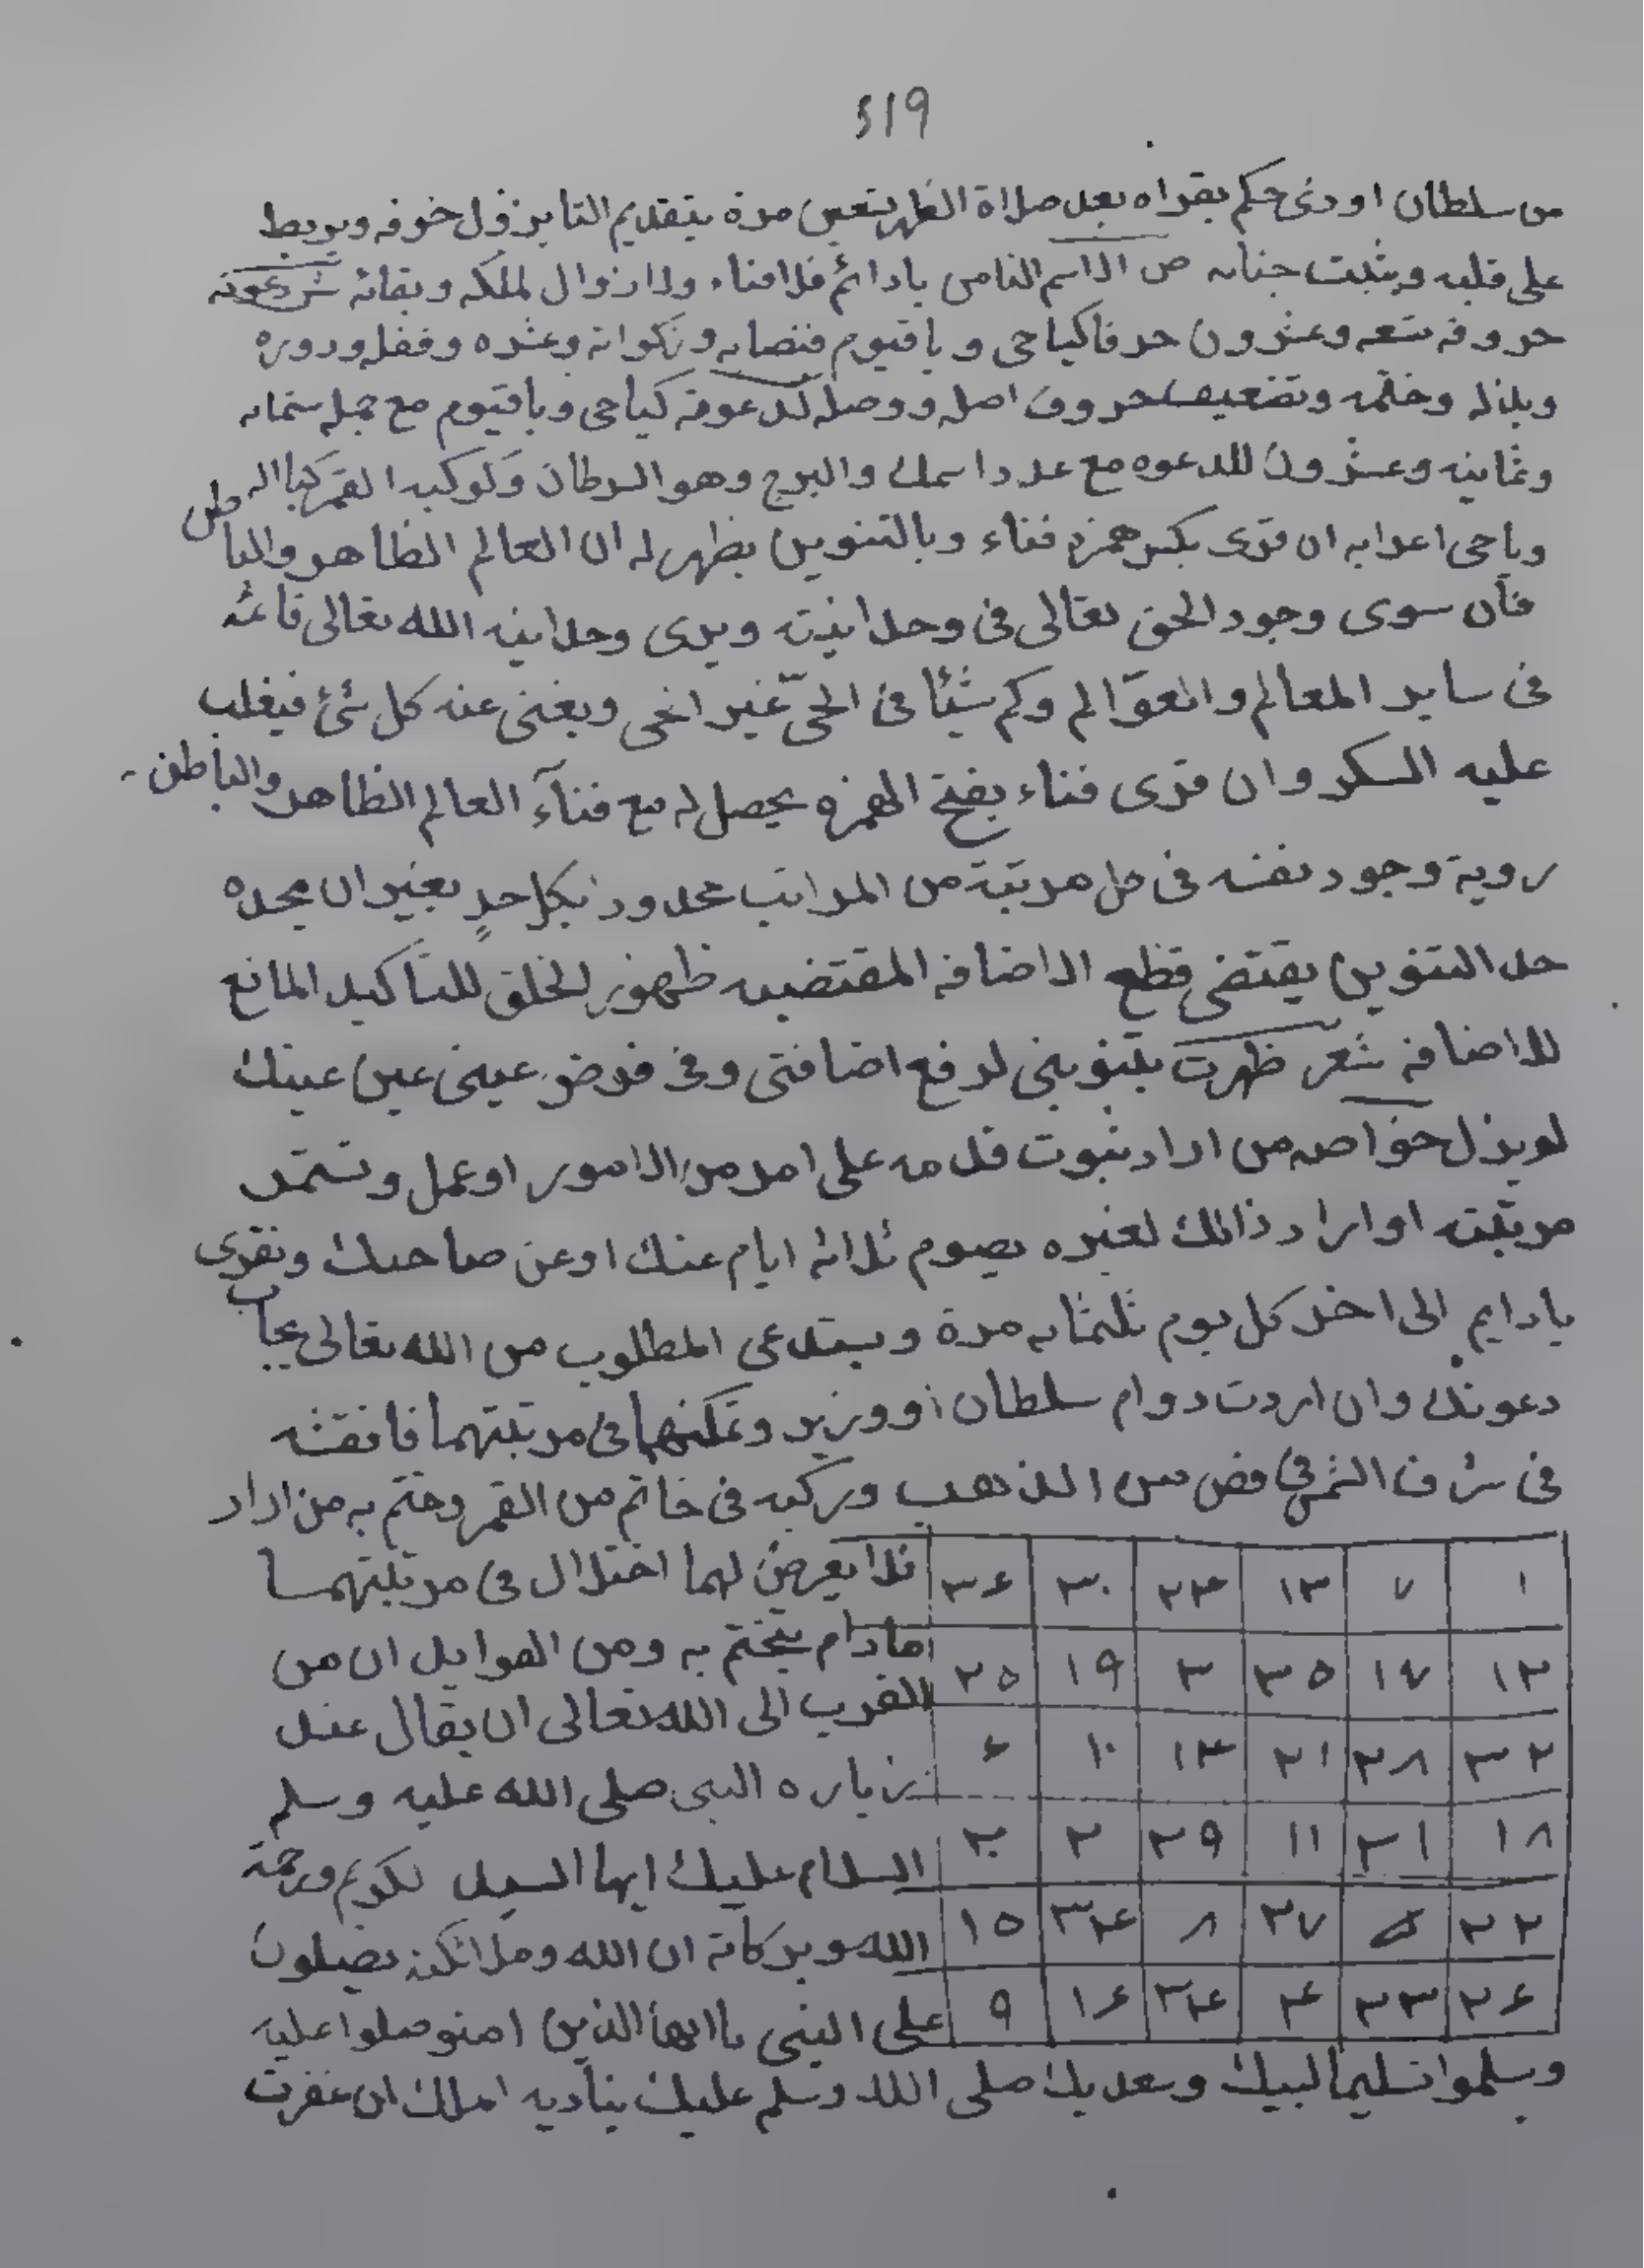 319
من سلطان او ذى حكم يقراه بعد صلاة الظهر تسعين مرة بتقديم التا يزول خوفه ويربط
على قلبه ويثبت جنانه ص الاسم الثامن يا دائم فلا فناء ولا زوال لملكه وبقائه شر دعوته
حروفه تسعه وعشرون حرفا كياحى ويا قيوم فنصابه وزكواته وعشره وقفله ودوره
وبذله وختمه وتضعيف حروف اصله ووصله لدعوته كياحى ويا قيوم مع جمله ستمايه
وثمانيه وعشرون للدعوه مع عدد اسمك والبرج وهو السرطان وكوكبه القمر كيا اله
وياحى اعرابه ان قرى بكسر همزه فناء وبالتنوين يظهر له ان العالم الظاهر والباطن
فان سوى وجود الحق تعالى فى وحدانيته ويرى وحدانيه الله تعالى قائمه
فى ساير المعالم والعوالم وكم شيئا فى الحى غير الحى ويفنى عنه كل شئ فيغلب
عليه السكر وان قرى فناء بفتح الهمزه يحصل له مع فنآء العالم الظاهر والباطن
روية وجود نفسه فى كل مرتبة من المراتب محدود بكل حدٍ بغير ان يحده
حد التنوين يقتضى قطع الاضافه المقتضيه ظهور الخلق للتاكيد المانع
للاضافه شعر ظهرت بتنوينى لدفع اضافتى وفى فرض عينى عين عينك
لم يزل خواصه من اراد ثبوت قدمه على امر من الامور او عمل وتستمر
مرتبته او اراد ذالك لغيره يصوم ثلاثه ايام عنك او عن صاحبك وتقرى
يا دايم الى اخر كل يوم ثلثمايه مرة ويستدعى المطلوب من الله تعالى يجاب
دعوتك وان اردت دوام سلطان او وزير وتمكنهما فى مرتبتهما فانقشه
فى شرف الشمس فى فص من الذهب وركبه فى خاتم من القمر وختم به من اراد
فلا يعرض لهما اختلال فى مرتبتهما
مادام يتختم به ومن الفوايل ان من
القرب الى الله تعالى ان يقال عند
زياره النبى صلى الله عليه وسلم
السلام عليك ايها السيد لكريم ورحمة
الله وبركاته ان الله وملائكته يصلون
على النبى يا ايها الذين امنو صلوا عليه
١ ٧ ١٣ ٢٤ ٣٠ ٣٦
١٢ ١٧ ٣٥ ٣ ١٩ ٢٥
٣٢ ٢٨ ٢١ ١٤ ١٠ ٦
١٨ ٣١ ١١ ٢٩ ٢ ٢٠
٢٢ ٥ ٢٧ ٨ ٣٤ ١٥
٢٦ ٢٣ ٤ ٣٤ ١٦ ٩
وسلموا تسليما لبيك وسعديك صلى الله وسلم عليك يناديه املك ان غفرت